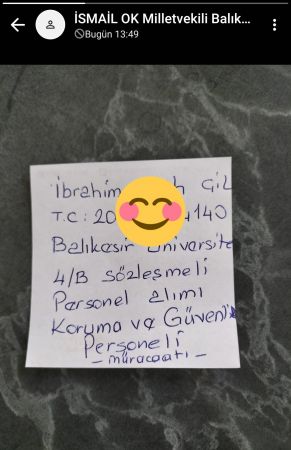 İSMAİL OK Milletvekili Balık...
Bugün 13:49
İbrahim GİL
T.C: 20 4140
Balıkesir Üniversite
4/B sözleşmeli
Personel alımı
Koruma ve Güvenlik
Personeli
- müracaatı -